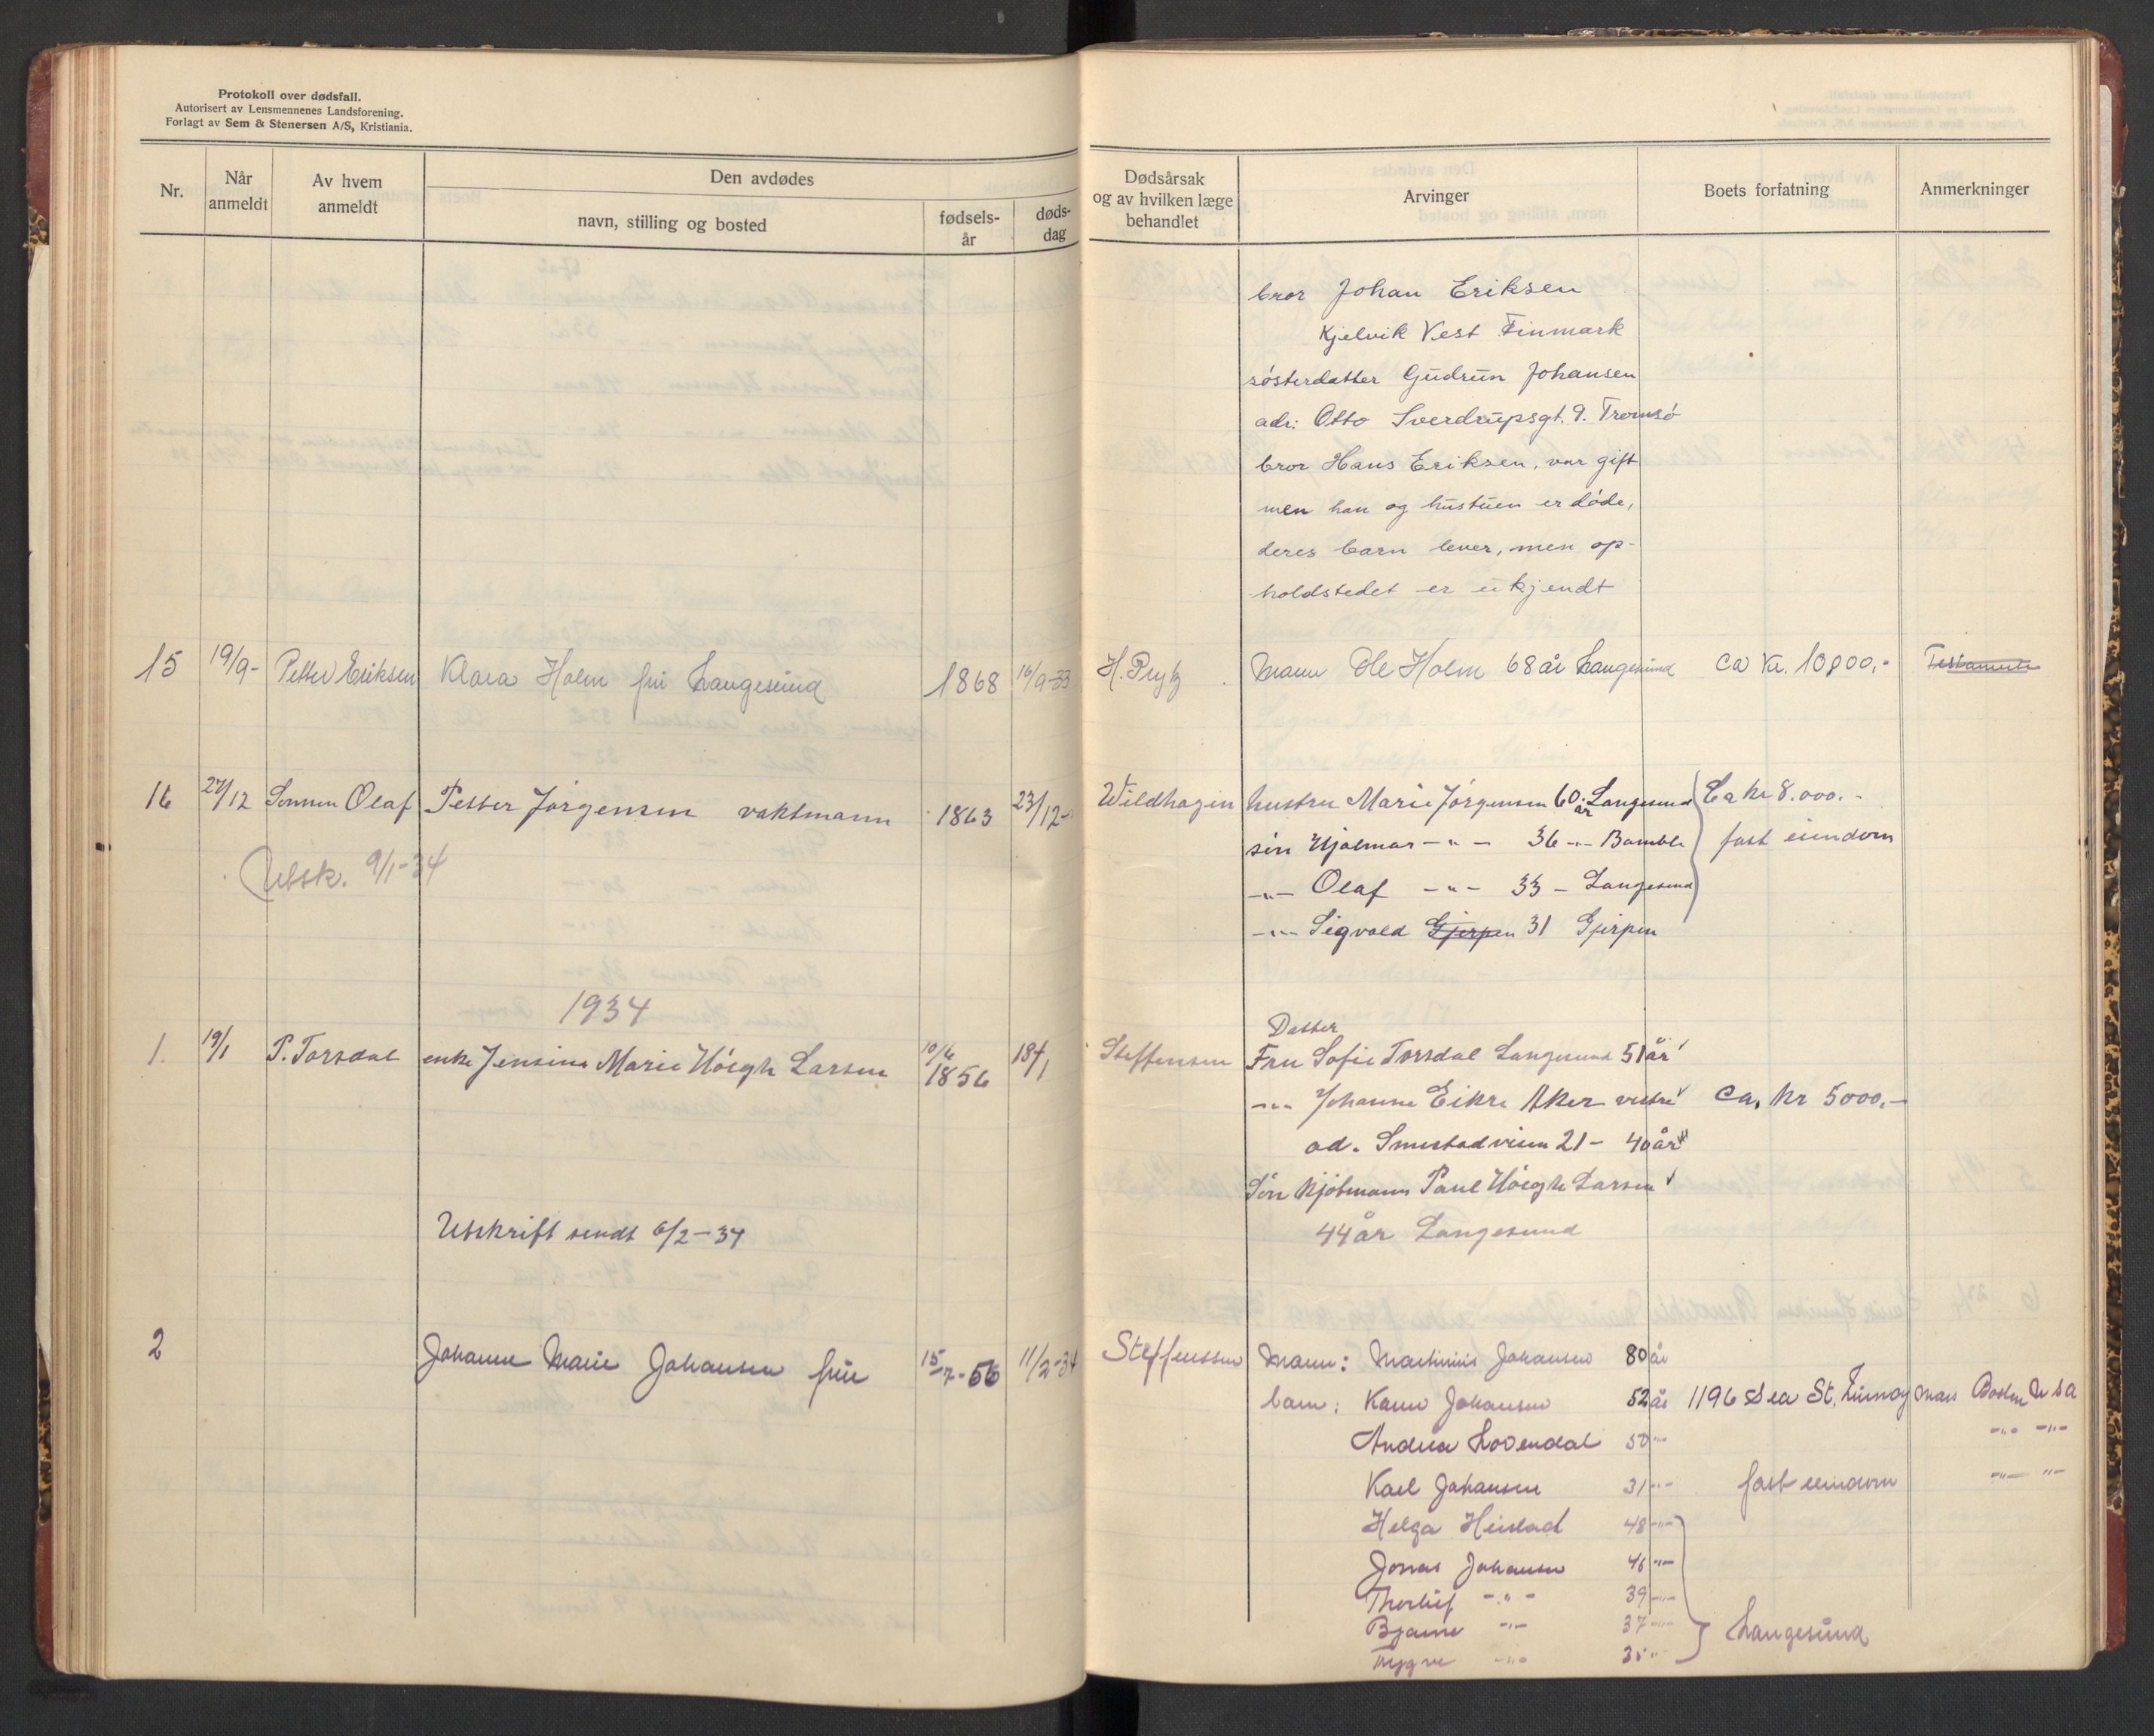 Protokoll over dødsfall.
Autorisert av Lensmennenes Landsforening.
Forlagt av Sem & Stenersen A/S, Kristiania.
Nr.
Når anmeldt
Av hvem anmeldt
Den avdødes
navn, stilling og bosted
fødsels-år
døds-dag
Dødsårsak og av hvilken læge behandlet
Arvinger
Boets forfatning
Anmerkninger
bror Johan Eriksen
Kjelvik Vest Finmark
søsterdatter Gudrun Johansen
adr: Otto Sverdrupsgt. 9. Tromsø
bror Hans Eriksen, var gift
men han og hustuen er døde,
deres barn lever, men op-
holdstedet er ukjendt
15 19/9- Petter Eriksen Klara Holm fru Langesund 1868 16/9-33 H. Prytz Mann Ole Holm 68 år Langesund Ca Kr. 10000,- Testamente
16 27/12 Sønnen Olaf Petter Jørgensen vaktmann 1863 23/12- Wildhagen hustru Marie Jørgensen 60 år Langesund Ca kr 8.000.-
søn Hjalmar -"- 36 -"- Bamble fast eiendom
Utsk. 9/1-34
-"- Olaf -"- 33 - Langesund
-"- Sigvald Gjerpen 31 Gjerpen
1934
Datter
1. 19/1 P. Torsdal enke Jensine Marie Høegh Larsen 10/6 1856 18/1 Steffensen Fru Sofie Torsdal Langesund 51 år
-"- Johanne Eikre Aker vestre Ca. Kr 5000.-
ad. Smestadveien 21 - 40 år
Søn Kjøbmann Paul Høegh Larsen
44 år Langesund
Utskrift sendt 6/2-34
2 Johanne Marie Johansen frue 15-7-56 11/2-34 Steffenssen Mann: Martinius Johansen 80 år
barn: Johansen 52 år 1196 Sea St. Mass Boston U S A
Andrea Lövendal 50 -"- -"- -"-
Karl Johansen 31 -"- fast eiendom -"- -"-
Helga Heistad 48 -"-
Jonas Johansen 46 -"-
Thorleif -"- 39 -"-
Bjarne -"- 37 -"- Langesund
Trygve -"- 35 "